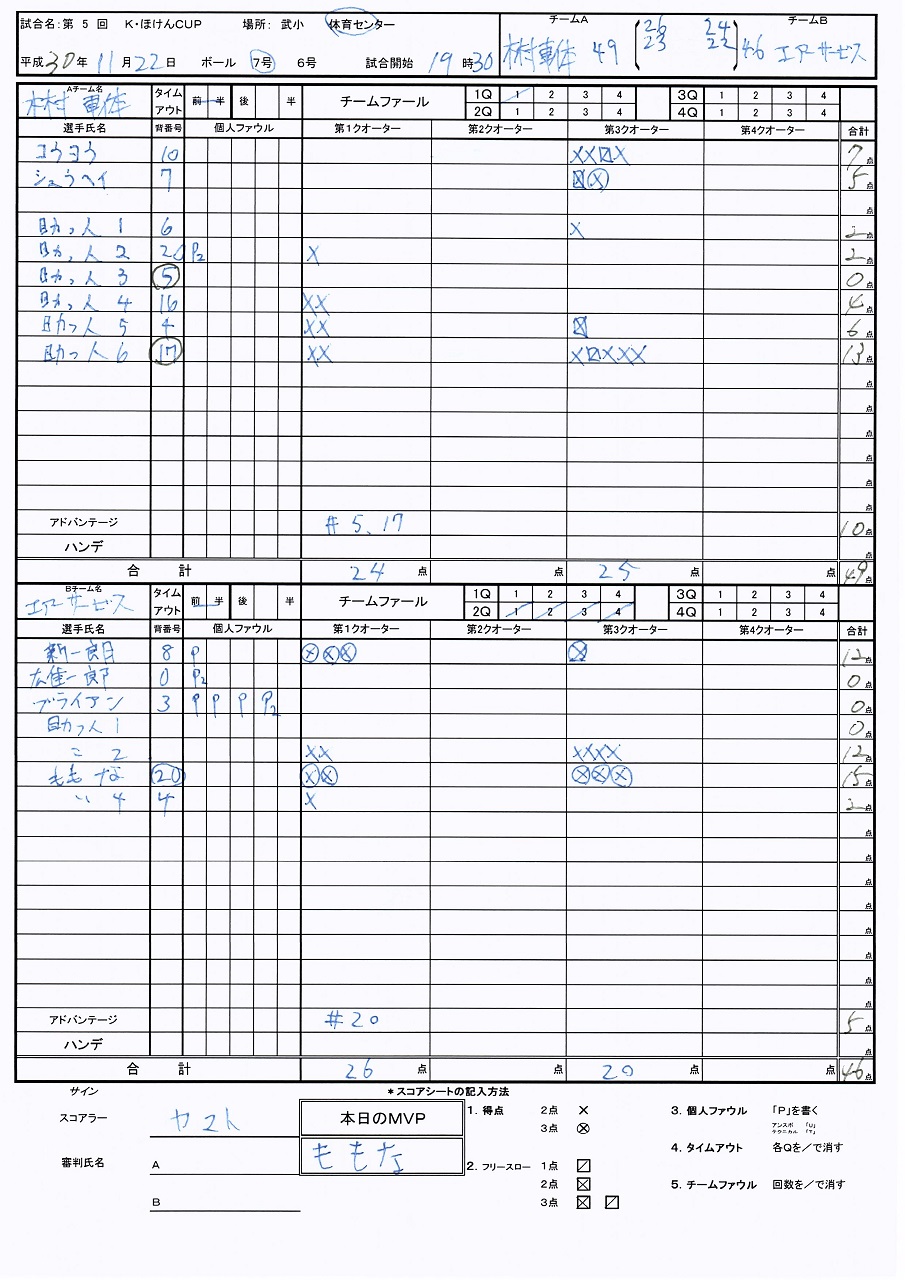 試合名:第 5 回 K・ほけんCUP 場所: 武小 体育センター
チームA チームB
平成30年 11月22日 ボール 7号 6号 試合開始 19時30
車体 49 26 24 46 エアーサービス
23 22
Aチーム名 タイムアウト 前 半 後 半 チームファール 1Q 1 2 3 4 3Q 1 2 3 4
車体 2Q 1 2 3 4 4Q 1 2 3 4
選手氏名 背番号 個人ファウル 第1クオーター 第2クオーター 第3クオーター 第4クオーター 合計
コウヨウ 10 7点
シュウヘイ 7 5点
点
助っ人 1 6 2点
助っ人 2 20 P2 2点
助っ人 3 5 0点
助っ人 4 16 4点
助っ人 5 4 6点
助っ人 6 17 13点
点
点
点
点
点
点
アドバンテージ #5、17 10点
ハンデ 点
合 計 24 点 点 25 点 点 49点
Bチーム名 タイムアウト 前 半 後 半 チームファール 1Q 1 2 3 4 3Q 1 2 3 4
エアーサービス 2Q 1 2 3 4 4Q 1 2 3 4
選手氏名 背番号 個人ファウル 第1クオーター 第2クオーター 第3クオーター 第4クオーター 合計
新一朗 8 P 12点
佳一郎 0 P2 0点
ブライアン 3 P P P P2 0点
助っ人 1 0点
2 12点
ももな 20 15点
〃 4 4 2点
点
点
点
点
点
点
点
点
アドバンテージ #20 5点
ハンデ 点
合 計 26 点 点 20 点 点 46点
サイン *スコアシートの記入方法
スコアラー 本日のMVP 1. 得点 2点 × 3. 個人ファウル 「P」を書く
3点 ⊗ アンスポ 「U」
テクニカル 「T」
ももな 4. タイムアウト 各Qを/で消す
審判氏名 A 2. フリースロー 1点
2点 5. チームファウル 回数を/で消す
B 3点